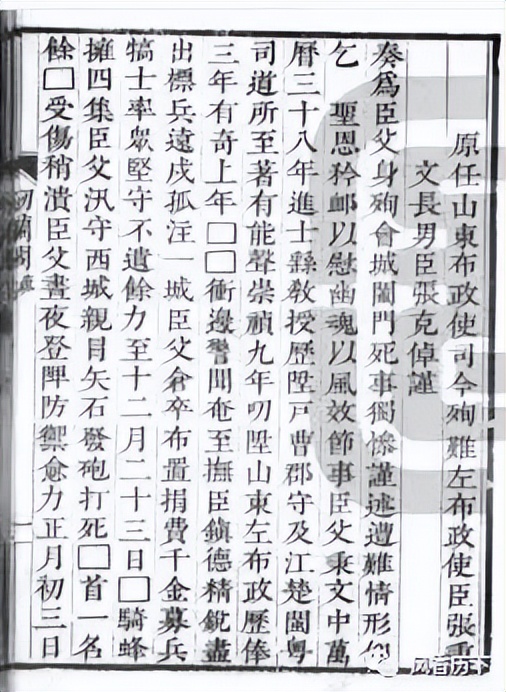 原任山東布政使司今殉難左布政使臣張秉
文長男臣張克倬謹
奏爲臣父身殉會城闔門死事獨慘謹述遭難情形仰
乞　聖恩矜卹以慰幽魂以風效節事臣父秉文中萬
曆三十八年進士繇敎授歷陞戸曹郡守及江楚閩粤
司道所至著有能聲崇禎九年叨陞山東左布政歷俸
三年有奇上年□□衝邊警聞奄至撫臣鎮德精銳盡
出標兵遠戍孤注一城臣父倉卒布置捐費千金募兵
犒士率衆堅守不遺餘力至十二月二十三日□騎蜂
擁四集臣父汛守西城親冒矢石發砲打死□首一名
餘□受傷稍潰臣父晝夜登陴防禦愈力正月初三日